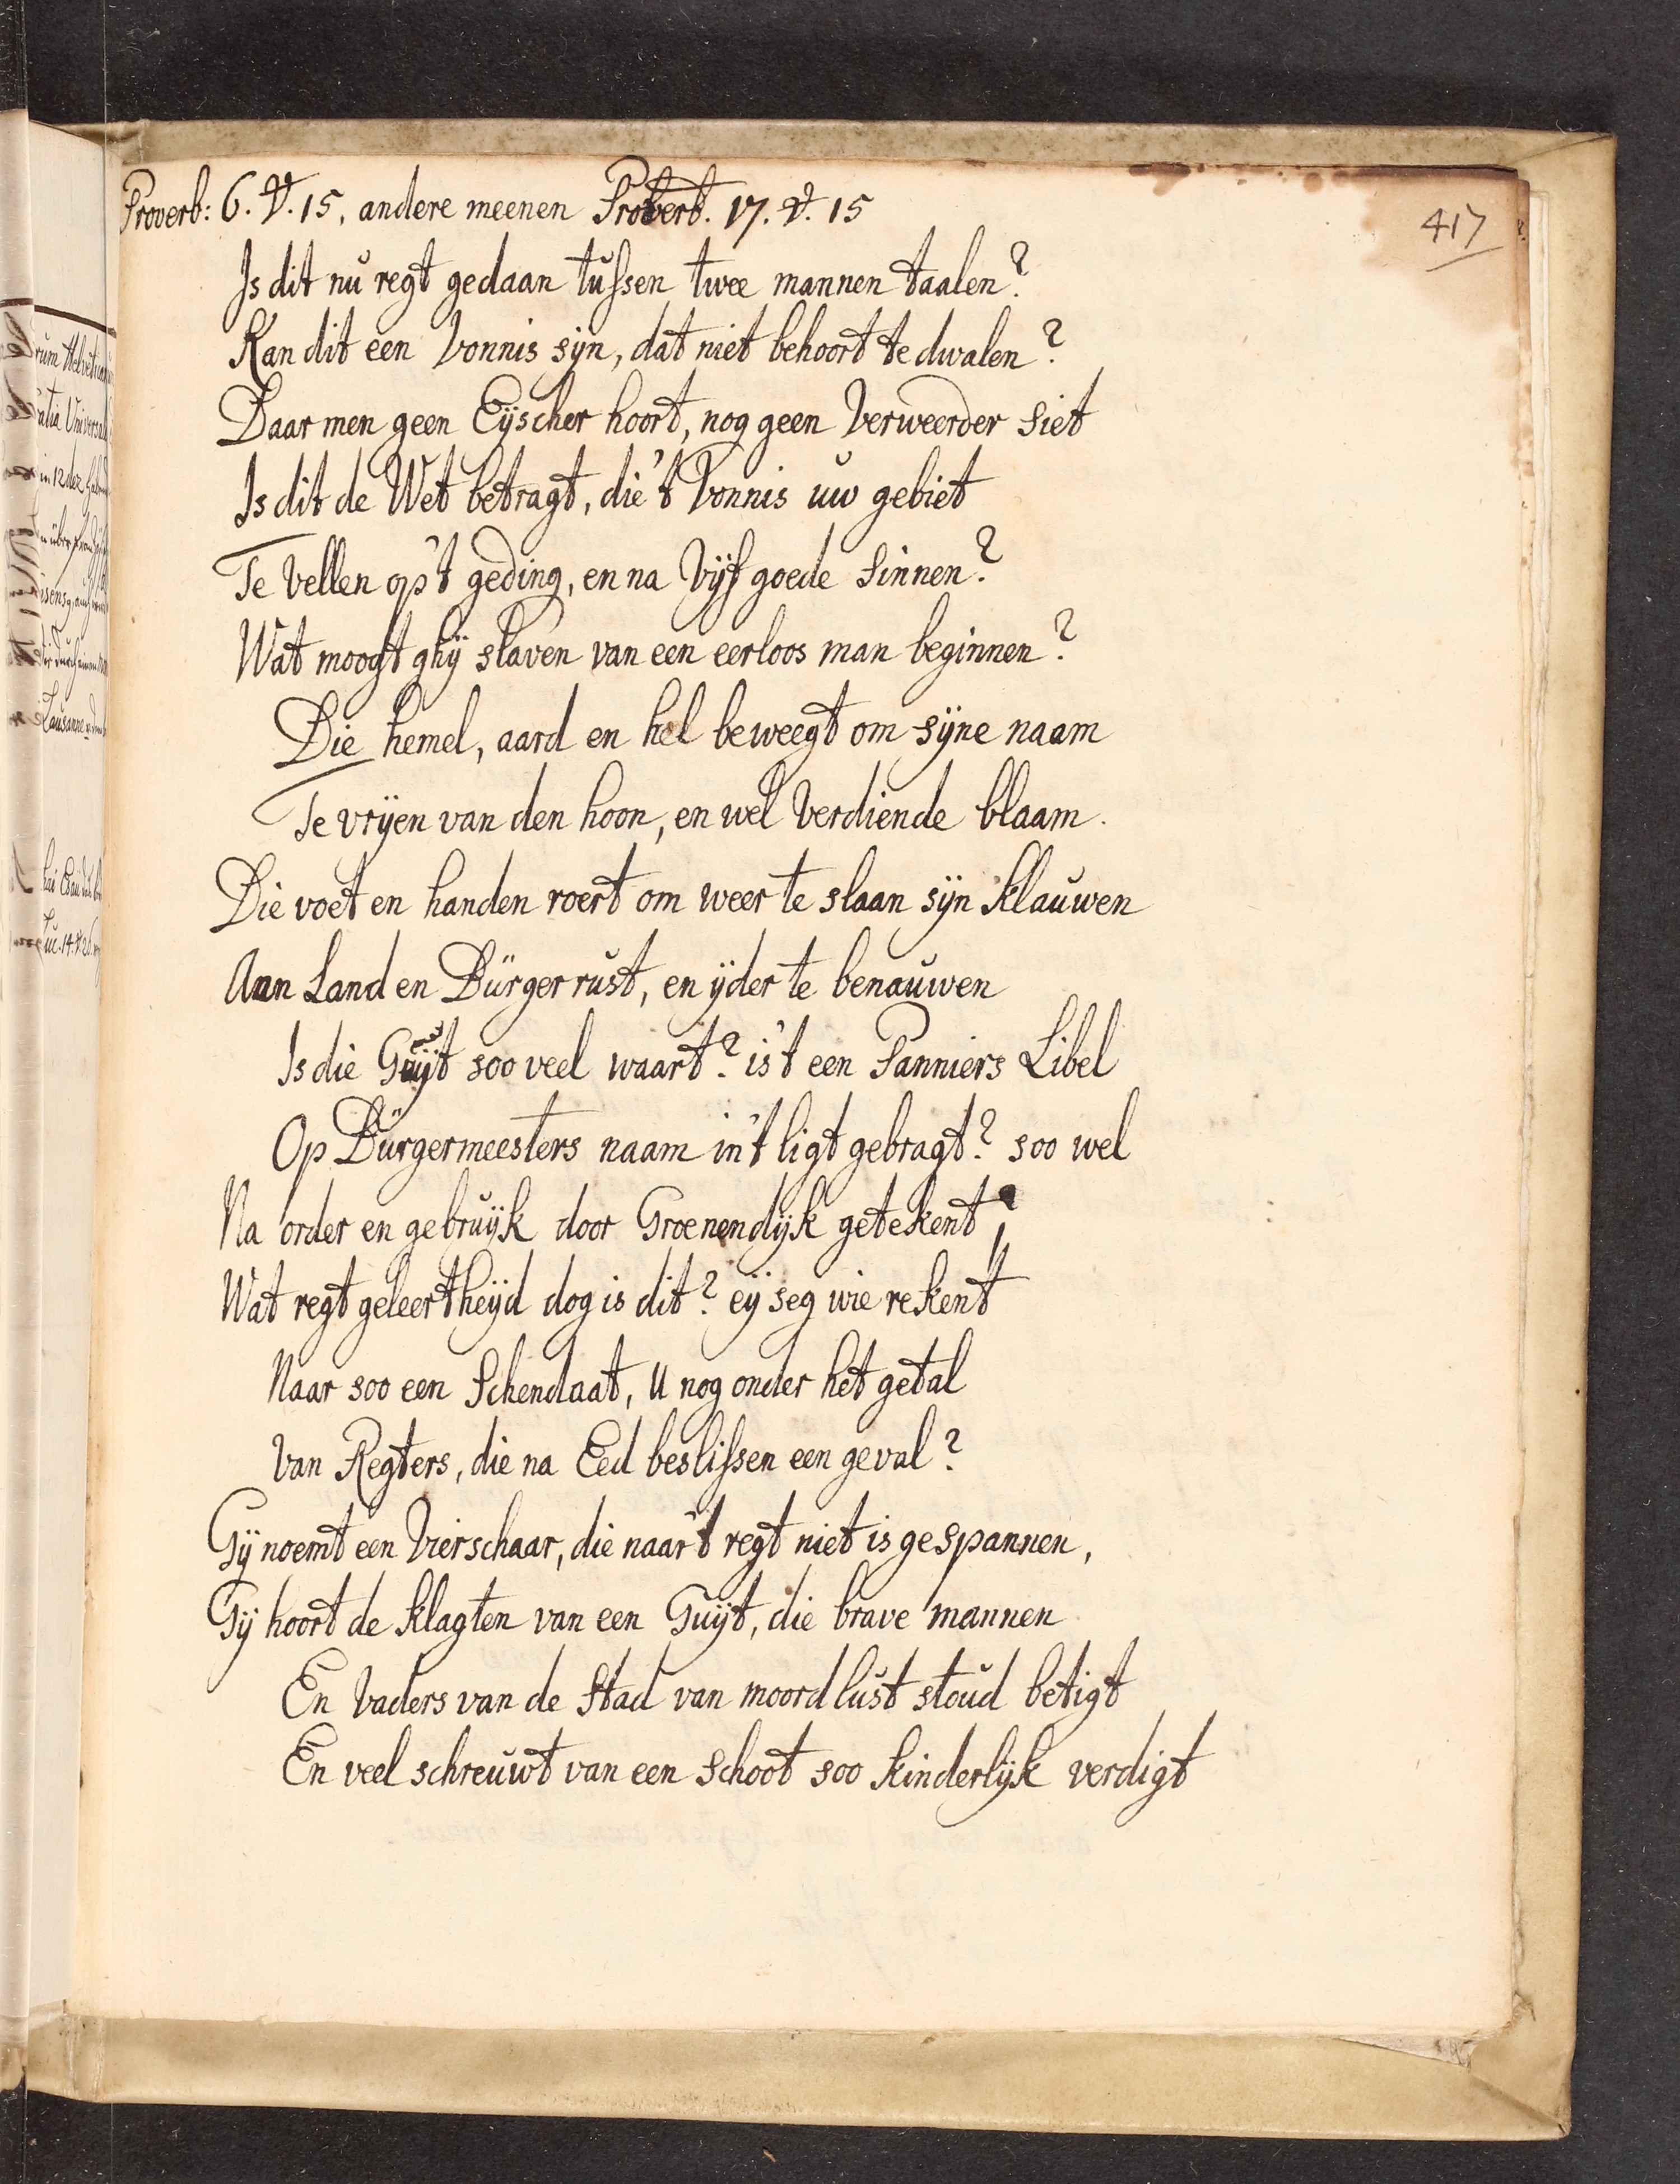 417
Proverb: 6. V. 15, andere meenen Proverb. 17. V. 15
Is dit nu regt gedaan tussen twee mannen taalen?
Kan dit een Vonnis sijn, dat niet behoort te dwalen?
Daar men geen Eijscher hoort, nog geen Verweerder siet
Is dit de Wet betragt, die 't Vonnis uw gebiet
Te Vellen op 't geding, en na Vijf goede sinnen?
Wat moogt ghij slaven van een eerloos man beginnen?
Die hemel, aard en hel beweegt om sijne naam
Te vrijen van den hoon, en wel Verdiende blaam.
Die voet en handen roert om weer te slaan sijn klauwen
Aan Land en Burger rust, en ijder te benauwen
Is die Guijt soo veel waart? is't een Panniers Libel
Op Burgermeesters naam in't ligt gebragt? soo wel
Na order en gebruijk door Groenendijk getekent?
Wat regt geleertheijd dog is dit? eij seg wie rekent
Naar soo een Schendaat, U nog onder het getal
Van Regters, die na Eed beslissen een geval?
Gij noemt een Vierschaar, die naar't regt niet is gespannen,
Gij hoort de klagten van een Guijt, die brave mannen
En Vaders van de Stad van moordlust stoud betigt
En veel schreuwt van een schoot soo kinderlijk verdigt